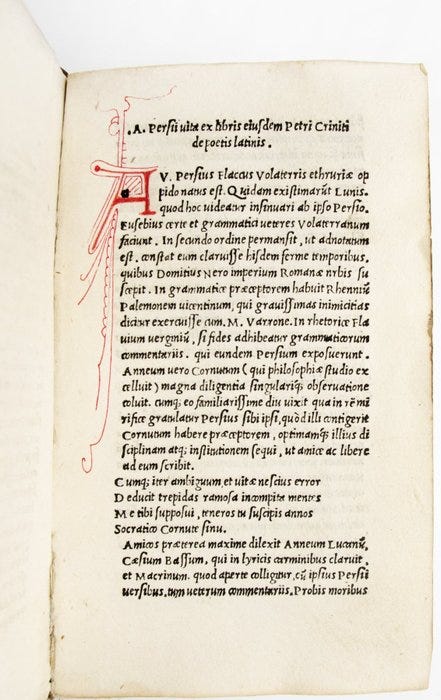 .A. Persii uita ex libris eiusdem Petri Criniti
de poetis latinis.
AV. Persius Flaccus Volaterris ethruriæ op
pido natus est. Quidam existimarūt Lunis.
quod hoc uideatur insinuari ab ipso Persio.
Eusebius certe et grammatici ueteres Volaterranum
faciunt. In secundo ordine permansit, ut adnotatum
est. constat eum claruisse hisdem ferme temporibus.
quibus Domitius Nero imperium Romanæ urbis su
scepit. In grammatice præceptorem habuit Rhenniū
Palemonem uicentinum, qui grauissimas inimicitias
dicitur exercuisse cum. M. Varrone. In rhetorice Fla
uium uerginiū, si fides adhibeatur grammaticorum
commentariis. qui eundem Persium exposuerunt.
Anneum uero Cornutum (qui philosophiæ studio ex
celluit) magna diligentia singulariq; obseruatione
coluit. cumq; eo familiarissime diu uixit qua in re mi
rifice gratulatur Persius sibi ipsi, quòd illi contigerit
Cornutum habere præceptorem, optimamq; illius di
sciplinam atq; institutionem sequi, ut amice ac libere
ad eum scribit.
Cumq; iter ambiguum, et uitæ nescius error
Deducit trepidas ramosa in compita mentes
Me tibi supposui, teneros tu suscipis annos
Socratico Cornute sinu.
Amicos præterea maxime dilexit Anneum Lucanū.
Cæsium Bassum, qui in lyricis carminibus claruit,
et Macrinum. quod aperte colligitur, cū ipsius Persii
uersibus. tum ueterum commentariis. Probis moribus